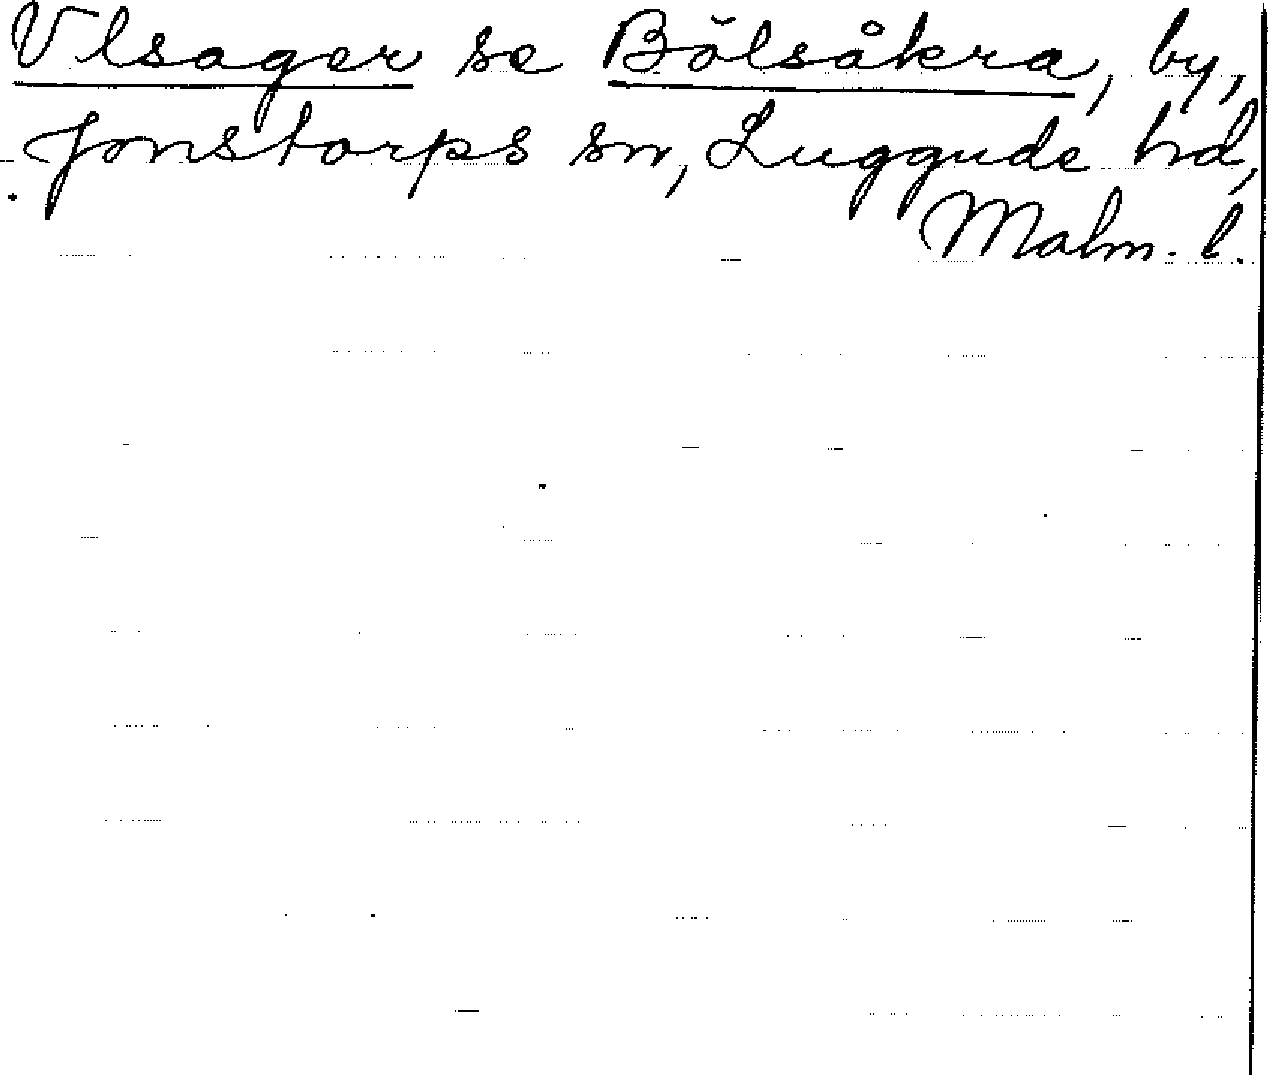 Vlsager se Bölsåkra, by,
Jonstorps sn, Luggude hd,
Malm. l.